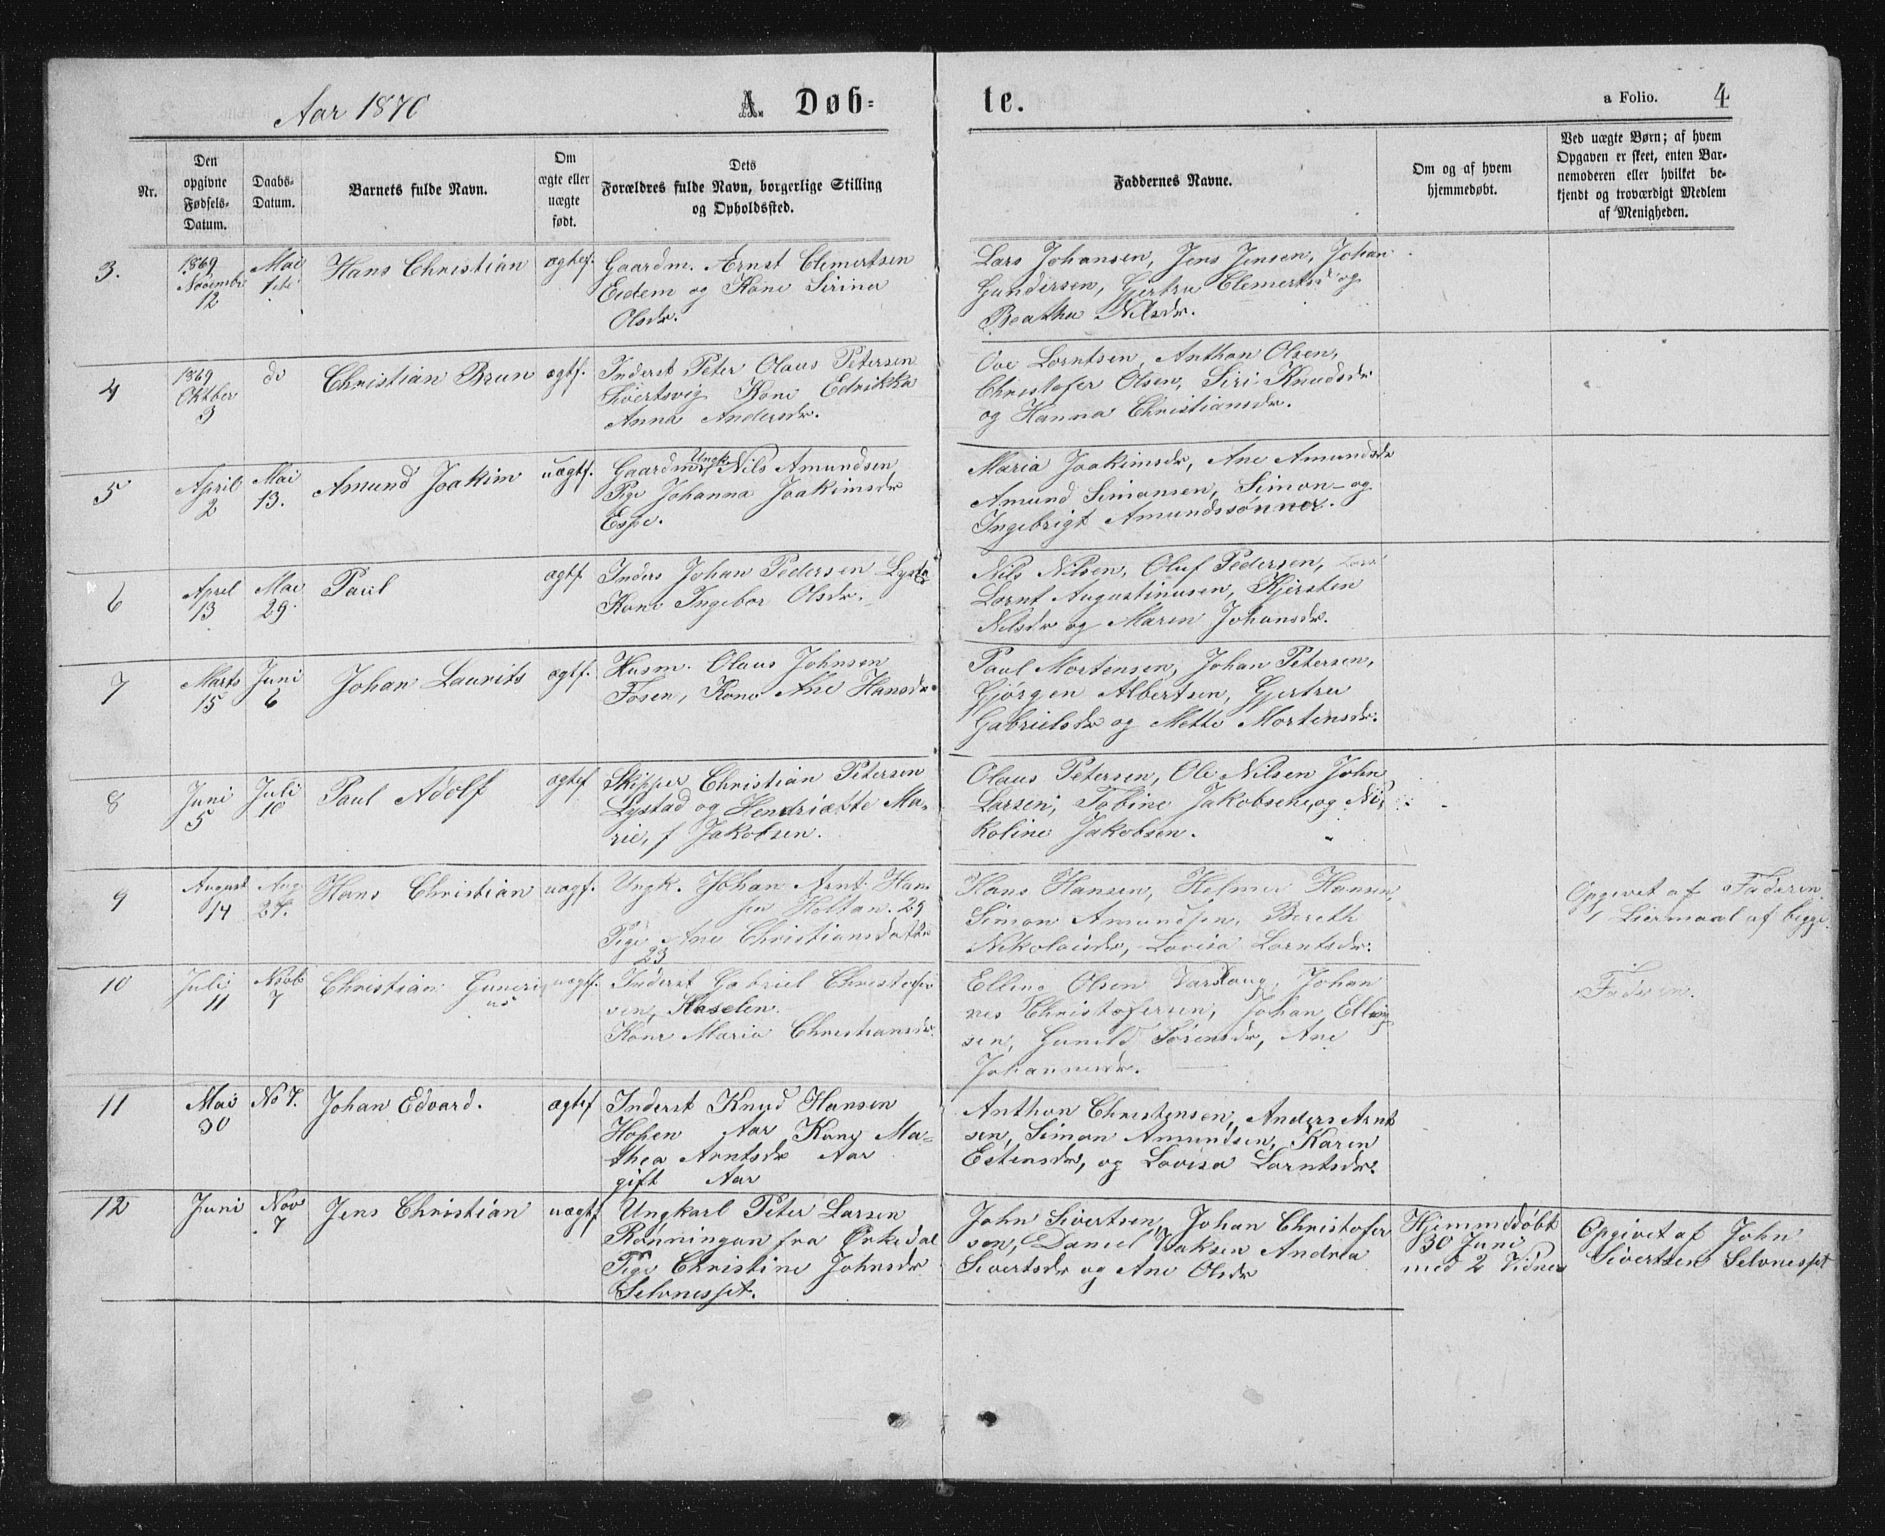 Aar 1870 A. Døb- te. a Folio. 4
Nr.
Den opgivne Fødsels-Datum.
Daabs-Datum.
Barnets fulde Navn.
Om ægte eller uægte født.
Dets Forældres fulde Navn, borgerlige Stilling og Opholdssted.
Faddernes Navne.
Om og af hvem hjemmedøbt.
Ved uægte Børn; af hvem Opgaven er skeet, enten Barnemoderen eller hvilket bekjendt og troværdigt Medlem af Menigheden.
3. 1869 Novembr 12 Mai 1ste Hans Christian ægtef.
Gaardm. Arnst Clemertsen
Eidem og Kone Sirina
Olsdr.
Lars Johansen, Jens Jensen, Johan
Gundersen, Gjertru Clemertsd og
Beatha Nilsdr.
4 1869 Oktber 3 do Christian Brun ægtf.
Inderst Peter Olaus Petersen
Sivertsvig Kone Edrikka
Anna Andersdr.
Ove Lorntsen, Anthon Olsen,
Christofer Olsen, Siri Knudsdr
og Hanna Christiansdr.
5 April 2 Mai 13. Amund Joakim uægtf.
Gaardm Ungk. Nils Amundsen
Pige Johanna Joakimsdr
Espe.
Maria Joakimsdr, Ane Amundsdr
Amund Simonsen, Simon- og
Ingebrigt Amundssønner.
6 April 13 Mai 29. Paul ægtf.
Inders Johan Pedersen Lysta
Kone Ingebor Olsdr.
Nils Nilsen, Oluf Pedersen, Lars
Lornt Augustinusen, Kjersten
Nilsdr og Maren Johansdr.
7 Marts 15 Juni 6 Johan Laurits ægtf.
Husm. Olaus Johnsen
Fosen, Kone Ane Hansdr.
Paul Mortensen, Johan Petersen,
Gjørgen Albertsen, Gjertru
Gabrielsdr og Mette Mortensdr.
8 Juni 5 Juli 10 Paul Adolf ægtef
Skipper Christian Petersen
Lystad og Hendriætte Ma-
rie, f Jakobsen.
Olaus Petersen, Ole Nilsen John
Larsen, Tobine Jakobsene, og Ni-
koline Jakobsen.
9 August 14 Aug 27. Hans Christian uægf.
Ungk. Johan Arnt Han-
sen Holtan. 29
Pige Ane Christiansdatter
23
Hans Hansen, Helmer Hansen,
Simon Amundsen, Bereth
Nikolaisdr, Lovisa Lorntsdr.
Opgivet af Faderen
Liermaal af begge
10 Juli 11 Novb 7 Christian Guneri us uægtf.
Inderst Gabriel Christofer
sen, Haselen.
Kone Maria Christiansdr
Elling Olsen Varslaug, Johan
nes Christofersen, Johan Elling
sen, Gunild Sørensdr, Ane
Johannesdr.
Faderen.
11 Mai 30 No 7. Johan Edvard. ægtef
Inderst Knud Hansen
Hopen Aar Kone Ma-
thea Arntsdr Aar
gift Aar
Anthon Christensen, Anders Arnt
sen, Simon Amundsen, Karen
Estensdr, og Lovisa Lorntsdr.
12 Juni Nov 7 Jens Christian uægtf
Ungkarl Peter Larsen
Rønningan fra Ørkedal
Pige Christine Johnsdr
Selvnesset.
John Sivertsen, Johan Christofer
sen, Daniel Isaksen Andrea
Sivertsdr og Ane Olsdr
Hjemmedøbt
30 Juni
med 2 Vidner
Opgivet af John
Sivertsen Selvnesset